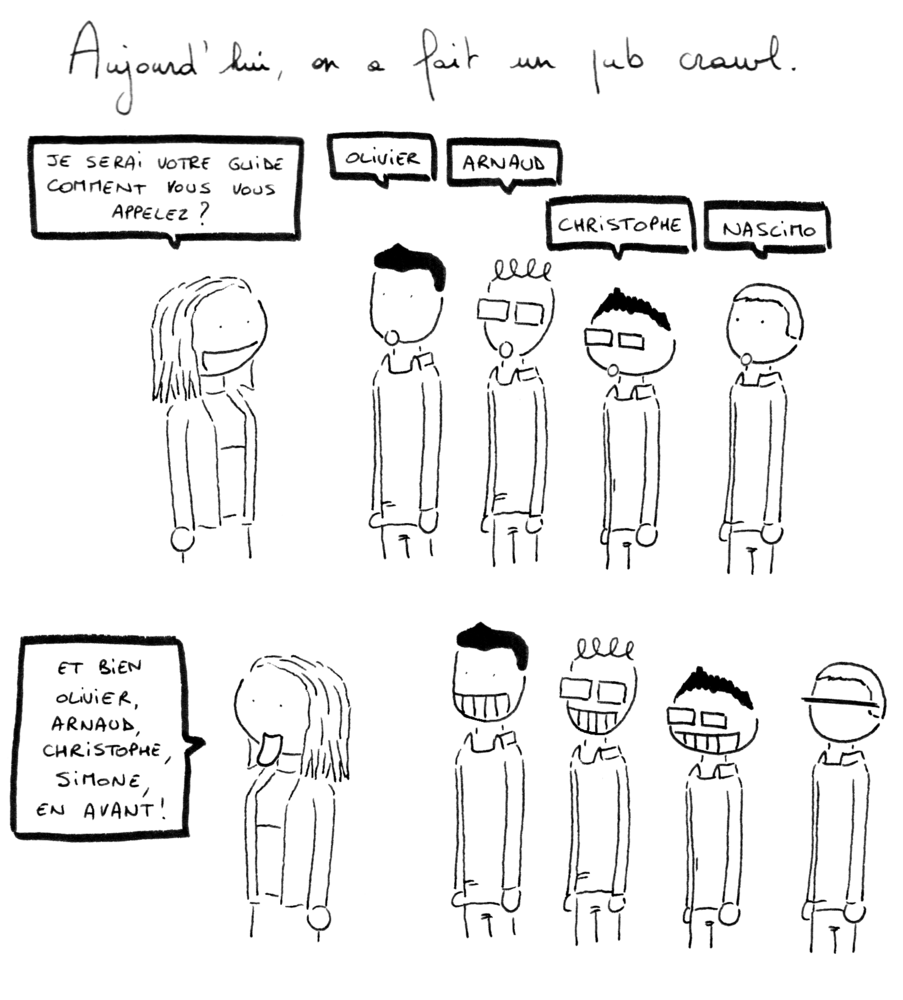 Aujourd'hui, on a fait un pub crawl.
JE SERAI VOTRE GUIDE
COMMENT VOUS VOUS
APPELEZ ?
OLIVIER
ARNAUD
CHRISTOPHE
NASCIMO
ET BIEN
OLIVIER,
ARNAUD,
CHRISTOPHE,
SIMONE,
EN AVANT !